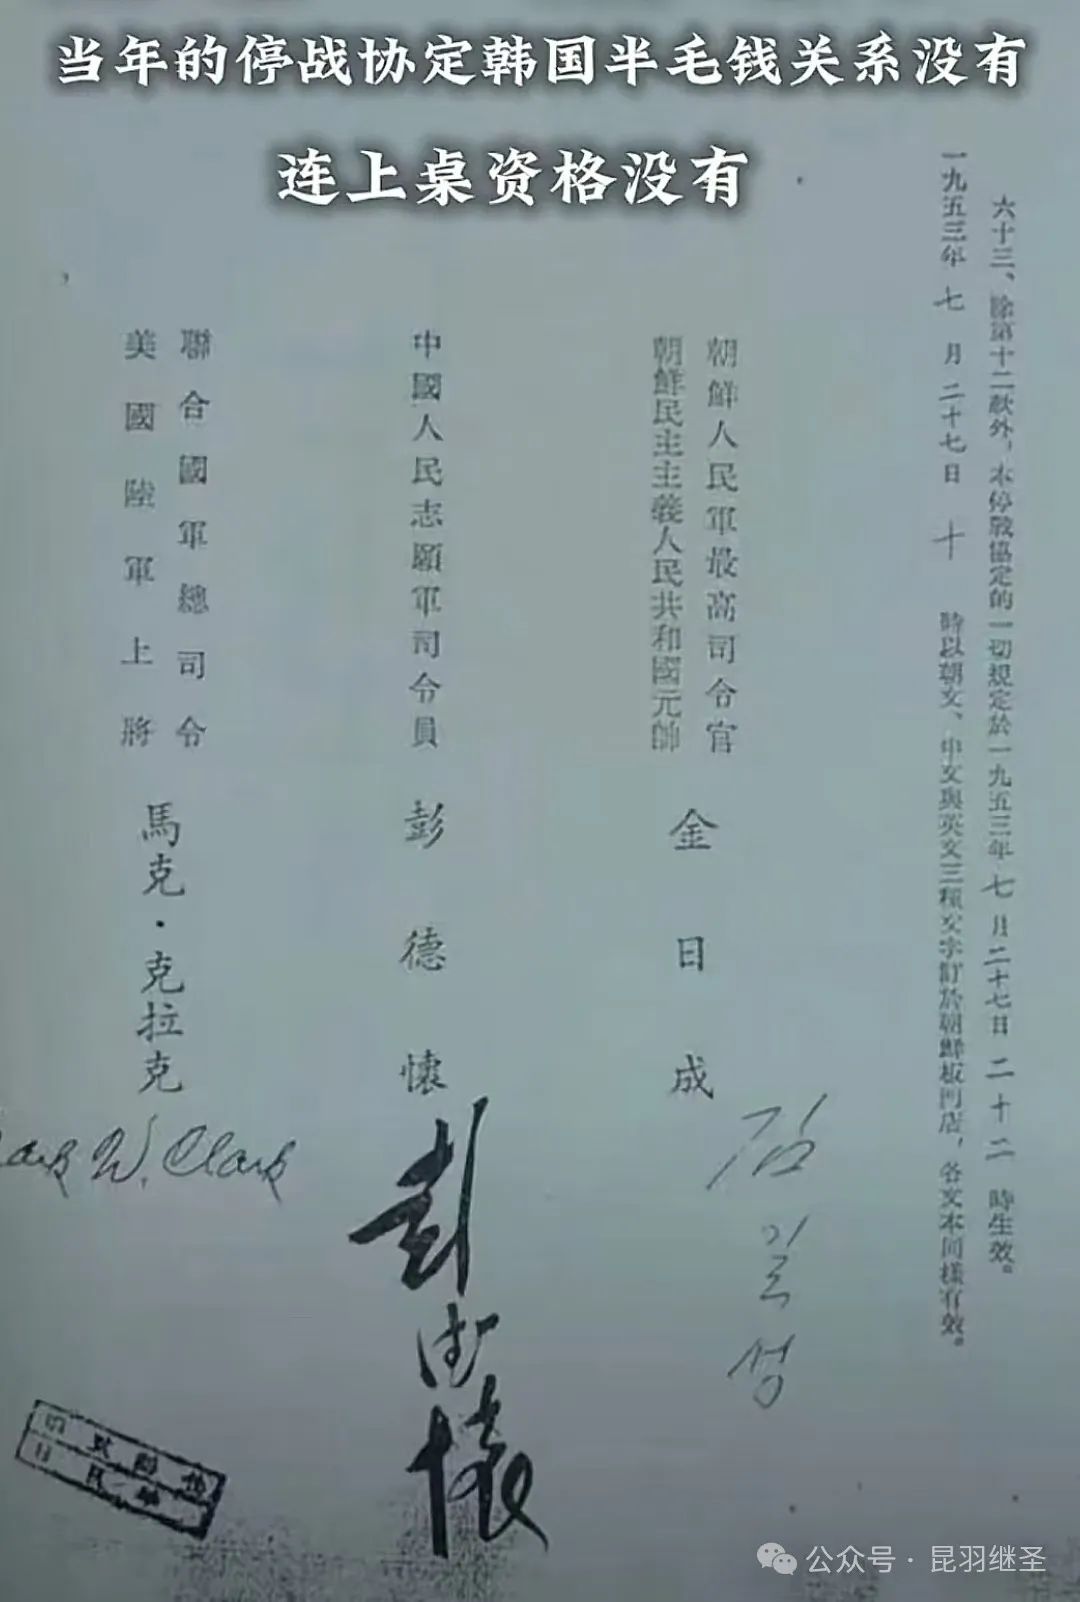 当年的停战协定韩国半毛钱关系没有
连上桌资格没有
六十三、除第十二款外，本停戰協定的一切規定於一九五三年七月二十七日二十二時生效。
一九五三年七月二十七日十時以朝文、中文與英文三種文字訂於朝鮮板門店，各文本同樣有效。
朝鮮人民軍最高司令官
朝鮮民主主義人民共和國元帥
金日成
김일성
中國人民志願軍司令員
彭德懷
彭德懷
聯合國軍總司令
美國陸軍上將
馬克·克拉克
Mark W. Clark
公众号·昆羽继圣